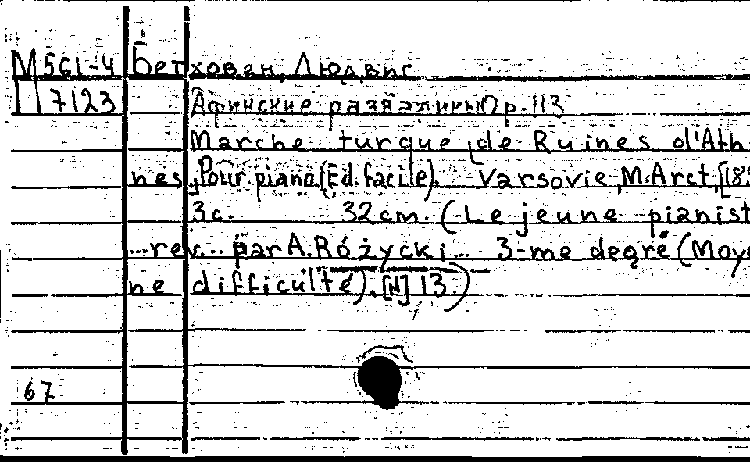 М 561-4 Бетховен, Людвиг
П 7123 Афинские развалины Op. 113
Marche turque de Ruines d'Ath
nes, Pour piano (Ed. facile). Varsovie, M. Arct, [18
3 с. 32 cm. (Le jeune pianist
...rev... par A. Różycki... 3-me degré (Moy
ne difficulté). [N] 13.)
67